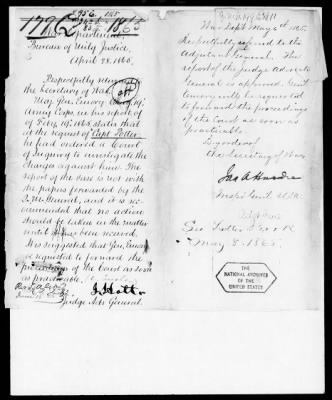 War Department,
Bureau of Mily Justice,
April 28. 1865.
Respectfully returned to
the Secretary of War.
Maj. Gen. Emory, 19th
Army Corps, in his report of
states that
at the request of Capt Potter
he had ordered a Court
of Inquiry to investigate the
charges against him. The
report of the case is not with
the papers forwarded by the
General, and it is re-
commended that no action
should be taken in the matter
until it has been received.
It is suggested that Gen. Emory
be requested to forward the
proceedings of the Court as soon
as practicable.
J. Holt
Judge Adv. General.
War Dept May 6th 1865.
Respectfully referred to the
Adjutant General. The
report of the Judge Advocate
General is approved. Genl
Emory will be requested
to forward the proceedings
of the Court as soon as
practicable.
By order of
the Secretary of War
Jas A Hardie
May 8. 1865.
THE
NATIONAL ARCHIVES
OF THE
UNITED STATES